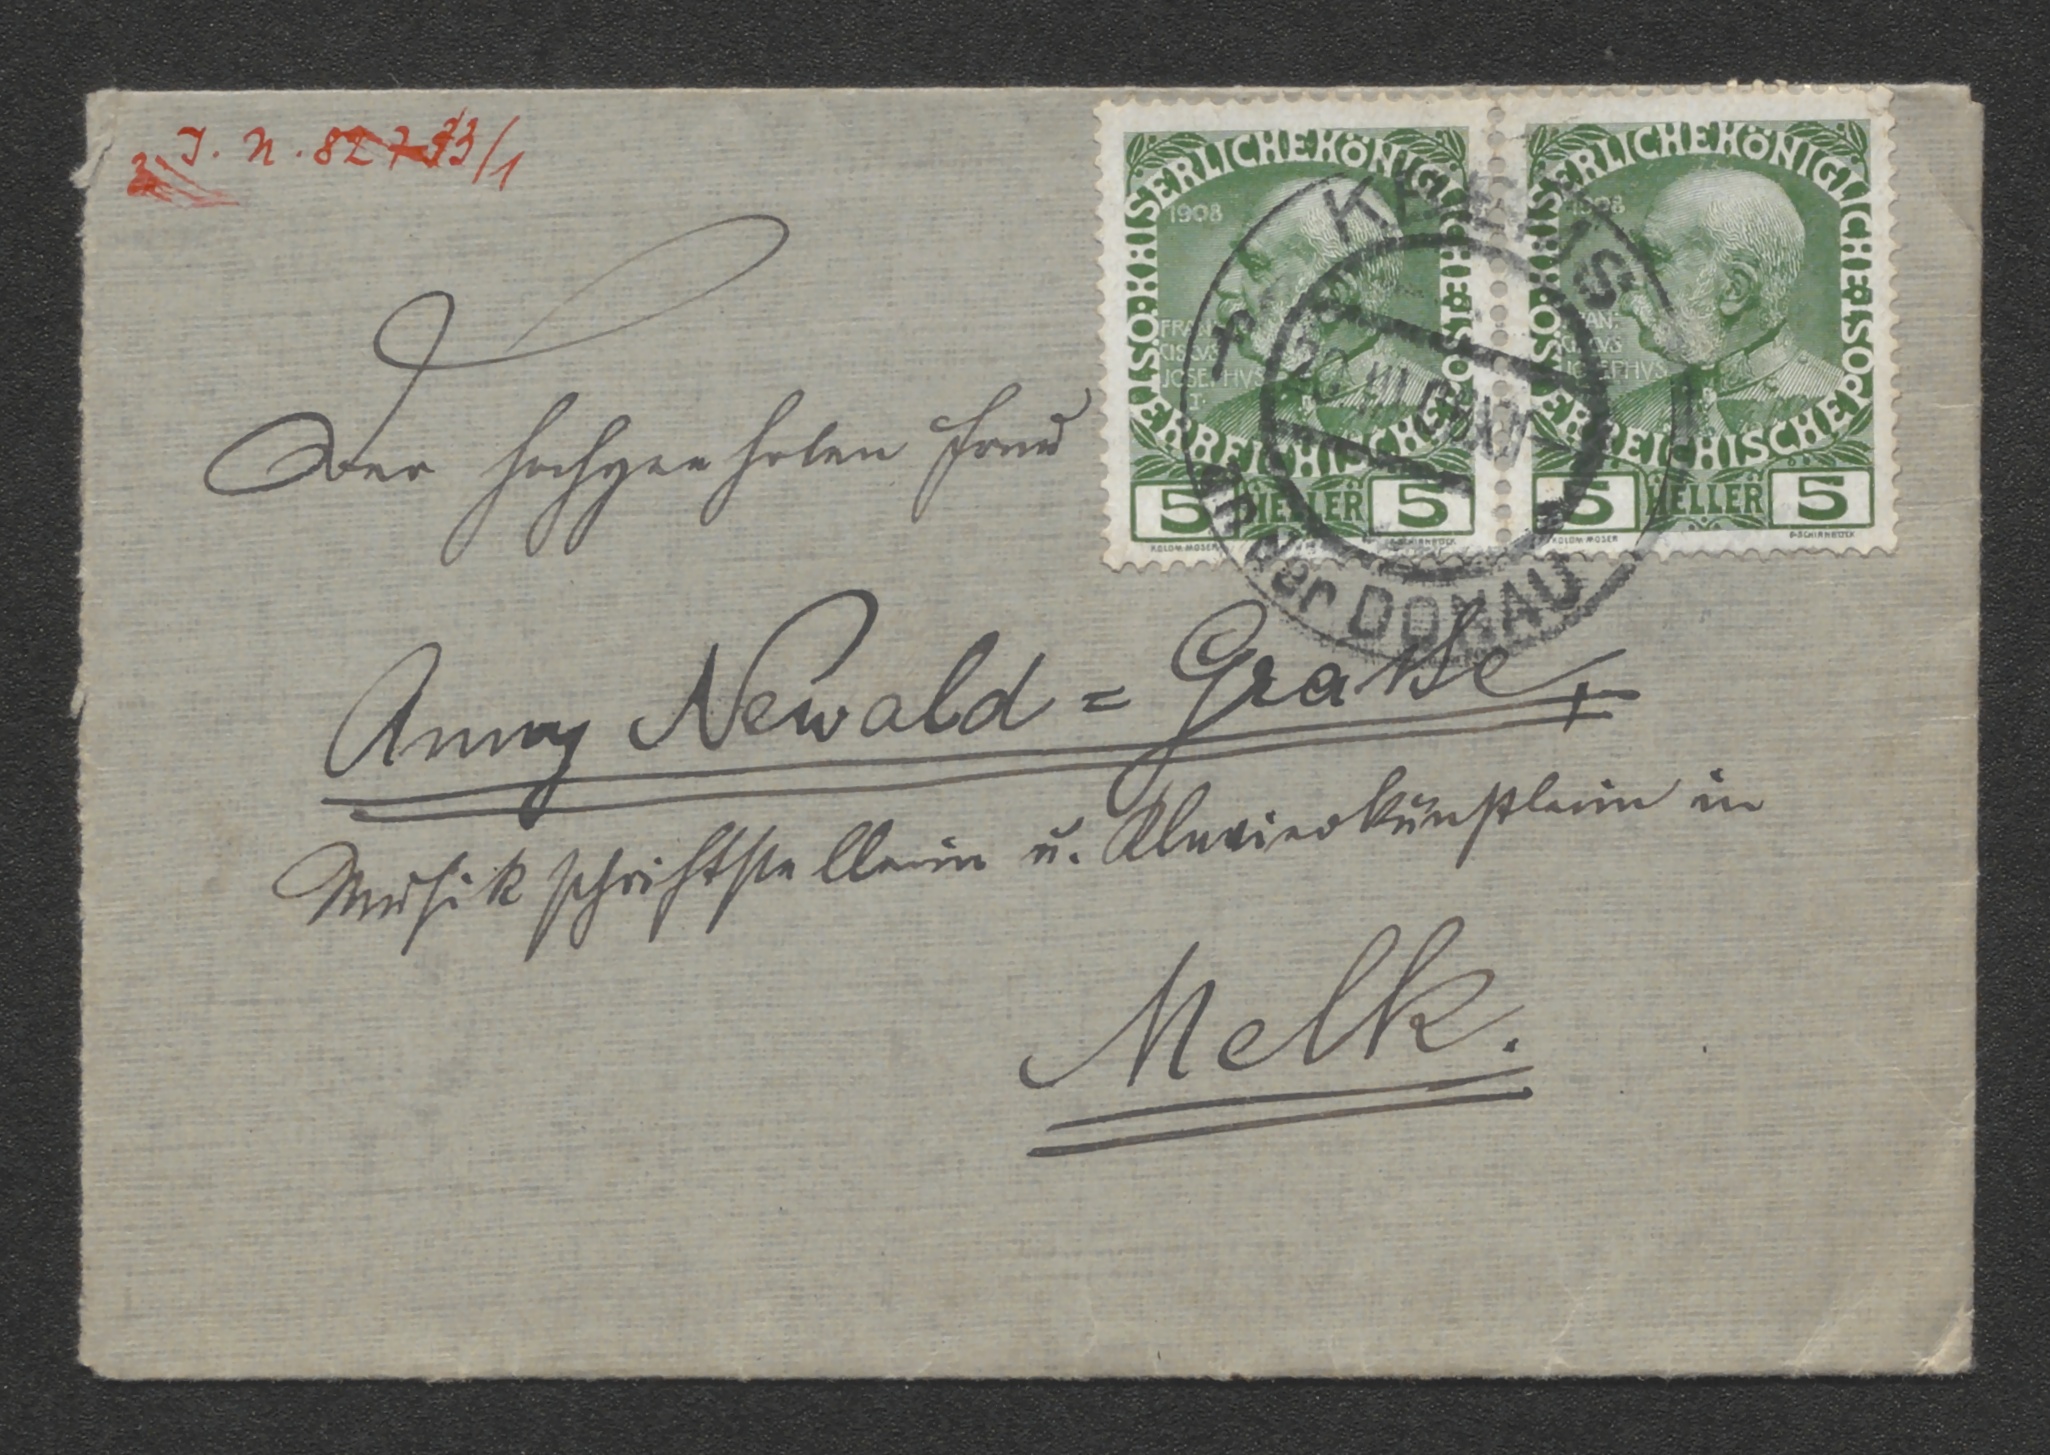 I. N.
KAISERLICHE KÖNIGLICHE ÖSTERREICHISCHE POST
1908
FRAN
CISCVS
JOSEPHVS
5 HELLER 5
KOLOM. MOSER
KAISERLICHE KÖNIGLICHE ÖSTERREICHISCHE POST
1908
FRAN
CISCVS
JOSEPHVS
5 HELLER 5
KOLOM. MOSER F. SCHIRNBÖCK
KREMS
an der DONAU
Der hochgeehrten Frau
Anny Newald=Grasse,
Musikschriftstellerin u. Klavierkünstlerin in
Melk.